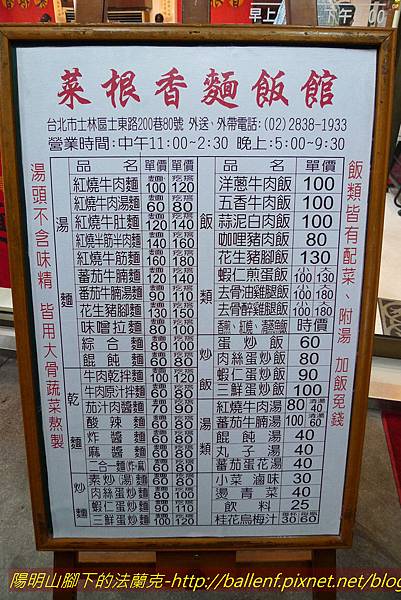 早上
下午
00
菜根香麵飯館
台北市士林區士東路200巷80號 外送、外帶電話:(02)2838-1933
營業時間:中午11:00~2:30 晚上:5:00~9:30
湯頭不含味精 皆用大骨蔬菜熬製
品名 單價 單價
湯麵
紅燒牛肉麵 100 120
紅燒牛肉湯麵 60 80
紅燒牛肚麵 120 140
紅燒牛筋半肉麵 140 160
紅燒牛筋麵 160 180
蕃茄牛腩麵 120 140
蕃茄牛腩湯麵 90 110
花生豬腳麵 130 150
味噌拉麵 80 100
綜合麵 60 80
餛飩麵 60 80
乾麵
牛肉乾拌麵 100 120
牛肉原汁拌麵 60 80
茄汁肉醬麵 70 90
酸辣麵 60 80
炸醬麵 60 80
麻醬麵 60 80
二合一麵(炸.麻) 60 80
炒麵
素炒(湯)麵 60 80
肉絲蛋炒麵 80 100
蝦仁蛋炒麵 90 110
三鮮蛋炒麵 100 120
品名 單價
飯類
洋蔥牛肉飯 100
五香牛肉飯 100
蒜泥白肉飯 100
咖哩豬肉飯 80
花生豬腳飯 130
蝦仁煎蛋飯 100 130
去骨油雞腿飯 100 180
去骨醉雞腿飯 100 180
時價
炒飯
蛋炒飯 60
肉絲蛋炒飯 80
蝦仁蛋炒飯 90
三鮮蛋炒飯 100
湯類
紅燒牛肉湯 80 清湯 40
蕃茄牛腩湯 100 清湯 60
餛飩湯 40
丸子湯 40
蕃茄蛋花湯 40
小菜 滷味 30
燙青菜 40
飲料 25
桂花烏梅汁 30 60
飯類皆有配菜、附湯 加飯免錢
陽明山腳下的法蘭克-http://ballenf.pixnet.net/blog